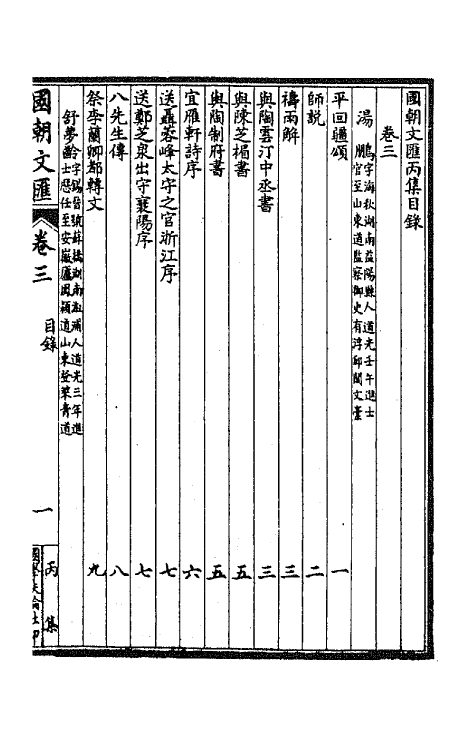 國朝文匯丙集目錄
卷三
湯鵬 字海秋湖南益陽縣人道光壬午進士
官至山東道監察御史有浮邱閣文臺
平回疆頌 一
師説 二
禱雨解 三
與陶雲汀中丞書 三
與陳芝楣書 五
與陶制府書 五
宜雁軒詩序 六
送聶蓉峰太守之官浙江序 七
送鄭芝泉出守襄陽序 七
八先生傳 八
祭李蘭卿都轉文 九
舒夢齡 字錫晉號蘇橋湖南溆浦人道光三年進
士歷任至安徽廬鳳潁道山東登萊青道
國朝文匯 卷三 目錄 一 丙集
國學扶輪社印